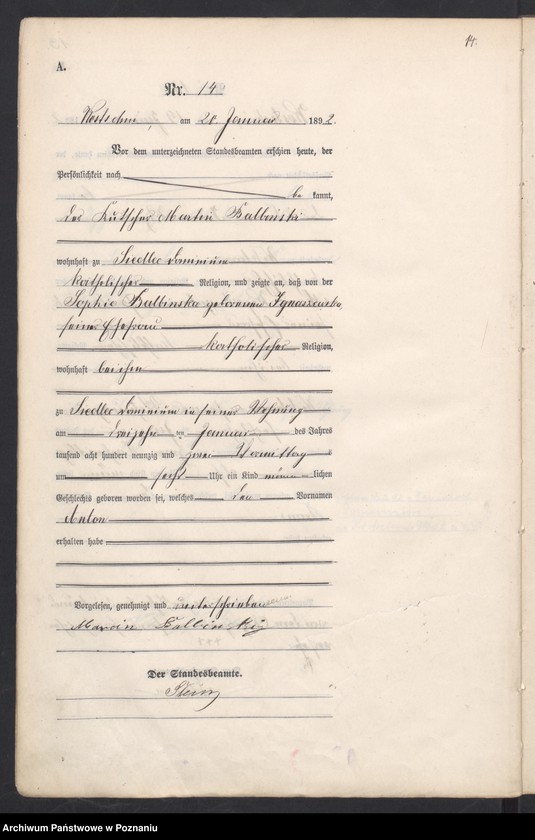 14.
A.
Nr. 14
Kostschin am 20. Januar 1892.
Vor dem unterzeichneten Standesbeamten erschien heute, der
Persönlichkeit nach
be kannt,
der Kutscher Martin Balbinski
wohnhaft zu Siedlec Dominium
katholischer Religion, und zeigte an, daß von der
Sophie Balbinska geborenen Ignaszewska,
seiner Ehefrau
katholischer Religion,
wohnhaft bei ihm
zu Siedlec Dominium in seiner Wohnung
am dreizehn ten Januar des Jahres
tausend acht hundert neunzig und zwei Vormittags
um sechs Uhr ein Kind männ lichen
Geschlechts geboren worden sei, welches den Vornamen
Anton
erhalten habe
Vorgelesen, genehmigt und unterschrieben
Marcin Balbinski
Der Standesbeamte.
Archiwum Państwowe w Poznaniu